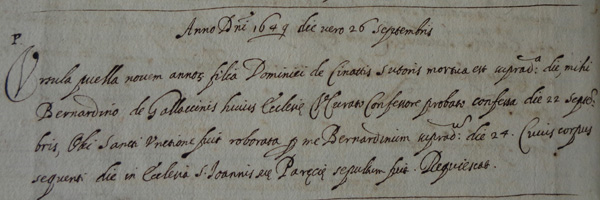 Anno Dni 1649 die vero 26 Septembris
P
Ursula puella novem annoꝝ filia Dominici de Cinattis sutoris mortua est suprad.ᵃ die mihi
Bernardino de Gallaccinis huius Ecclesiæ Curato Confessore probato confessa die 22 Septẽ-
bris, Olei Sancti Unctione fuit roborata ꝑ me Bernardinum suprad.ᵘᵐ die 24. Cuius corpus
sequenti die in Ecclesia S. Joannis eiꝰ Parœciæ sepultum fuit. Requiescat.